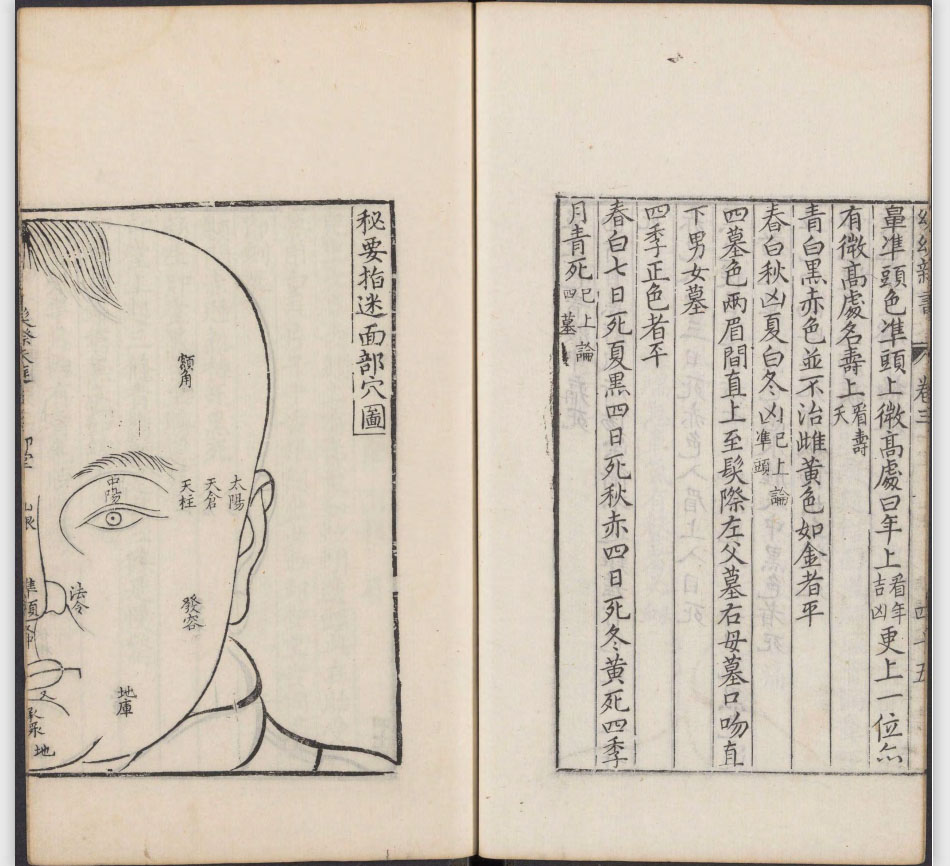 幼幼新書 卷三 四十五
暈準頭色準頭上微高處曰年上看年吉凶更上一位亦
有微高處名壽上看壽夭
青白黑赤色並不治雌黃色如金者平
春白秋凶夏白冬凶已上論準頭
四墓色兩眉間直上至髮際左父墓右母墓口吻直
下男女墓
四季正色者平
春白七日死夏黑四日死秋赤四日死冬黃死四季
月青死已上論四墓
秘要指迷面部穴圖
額角
太陽
天倉
天柱
中陽
山根
法令
準頭
發容
地庫
承漿
地